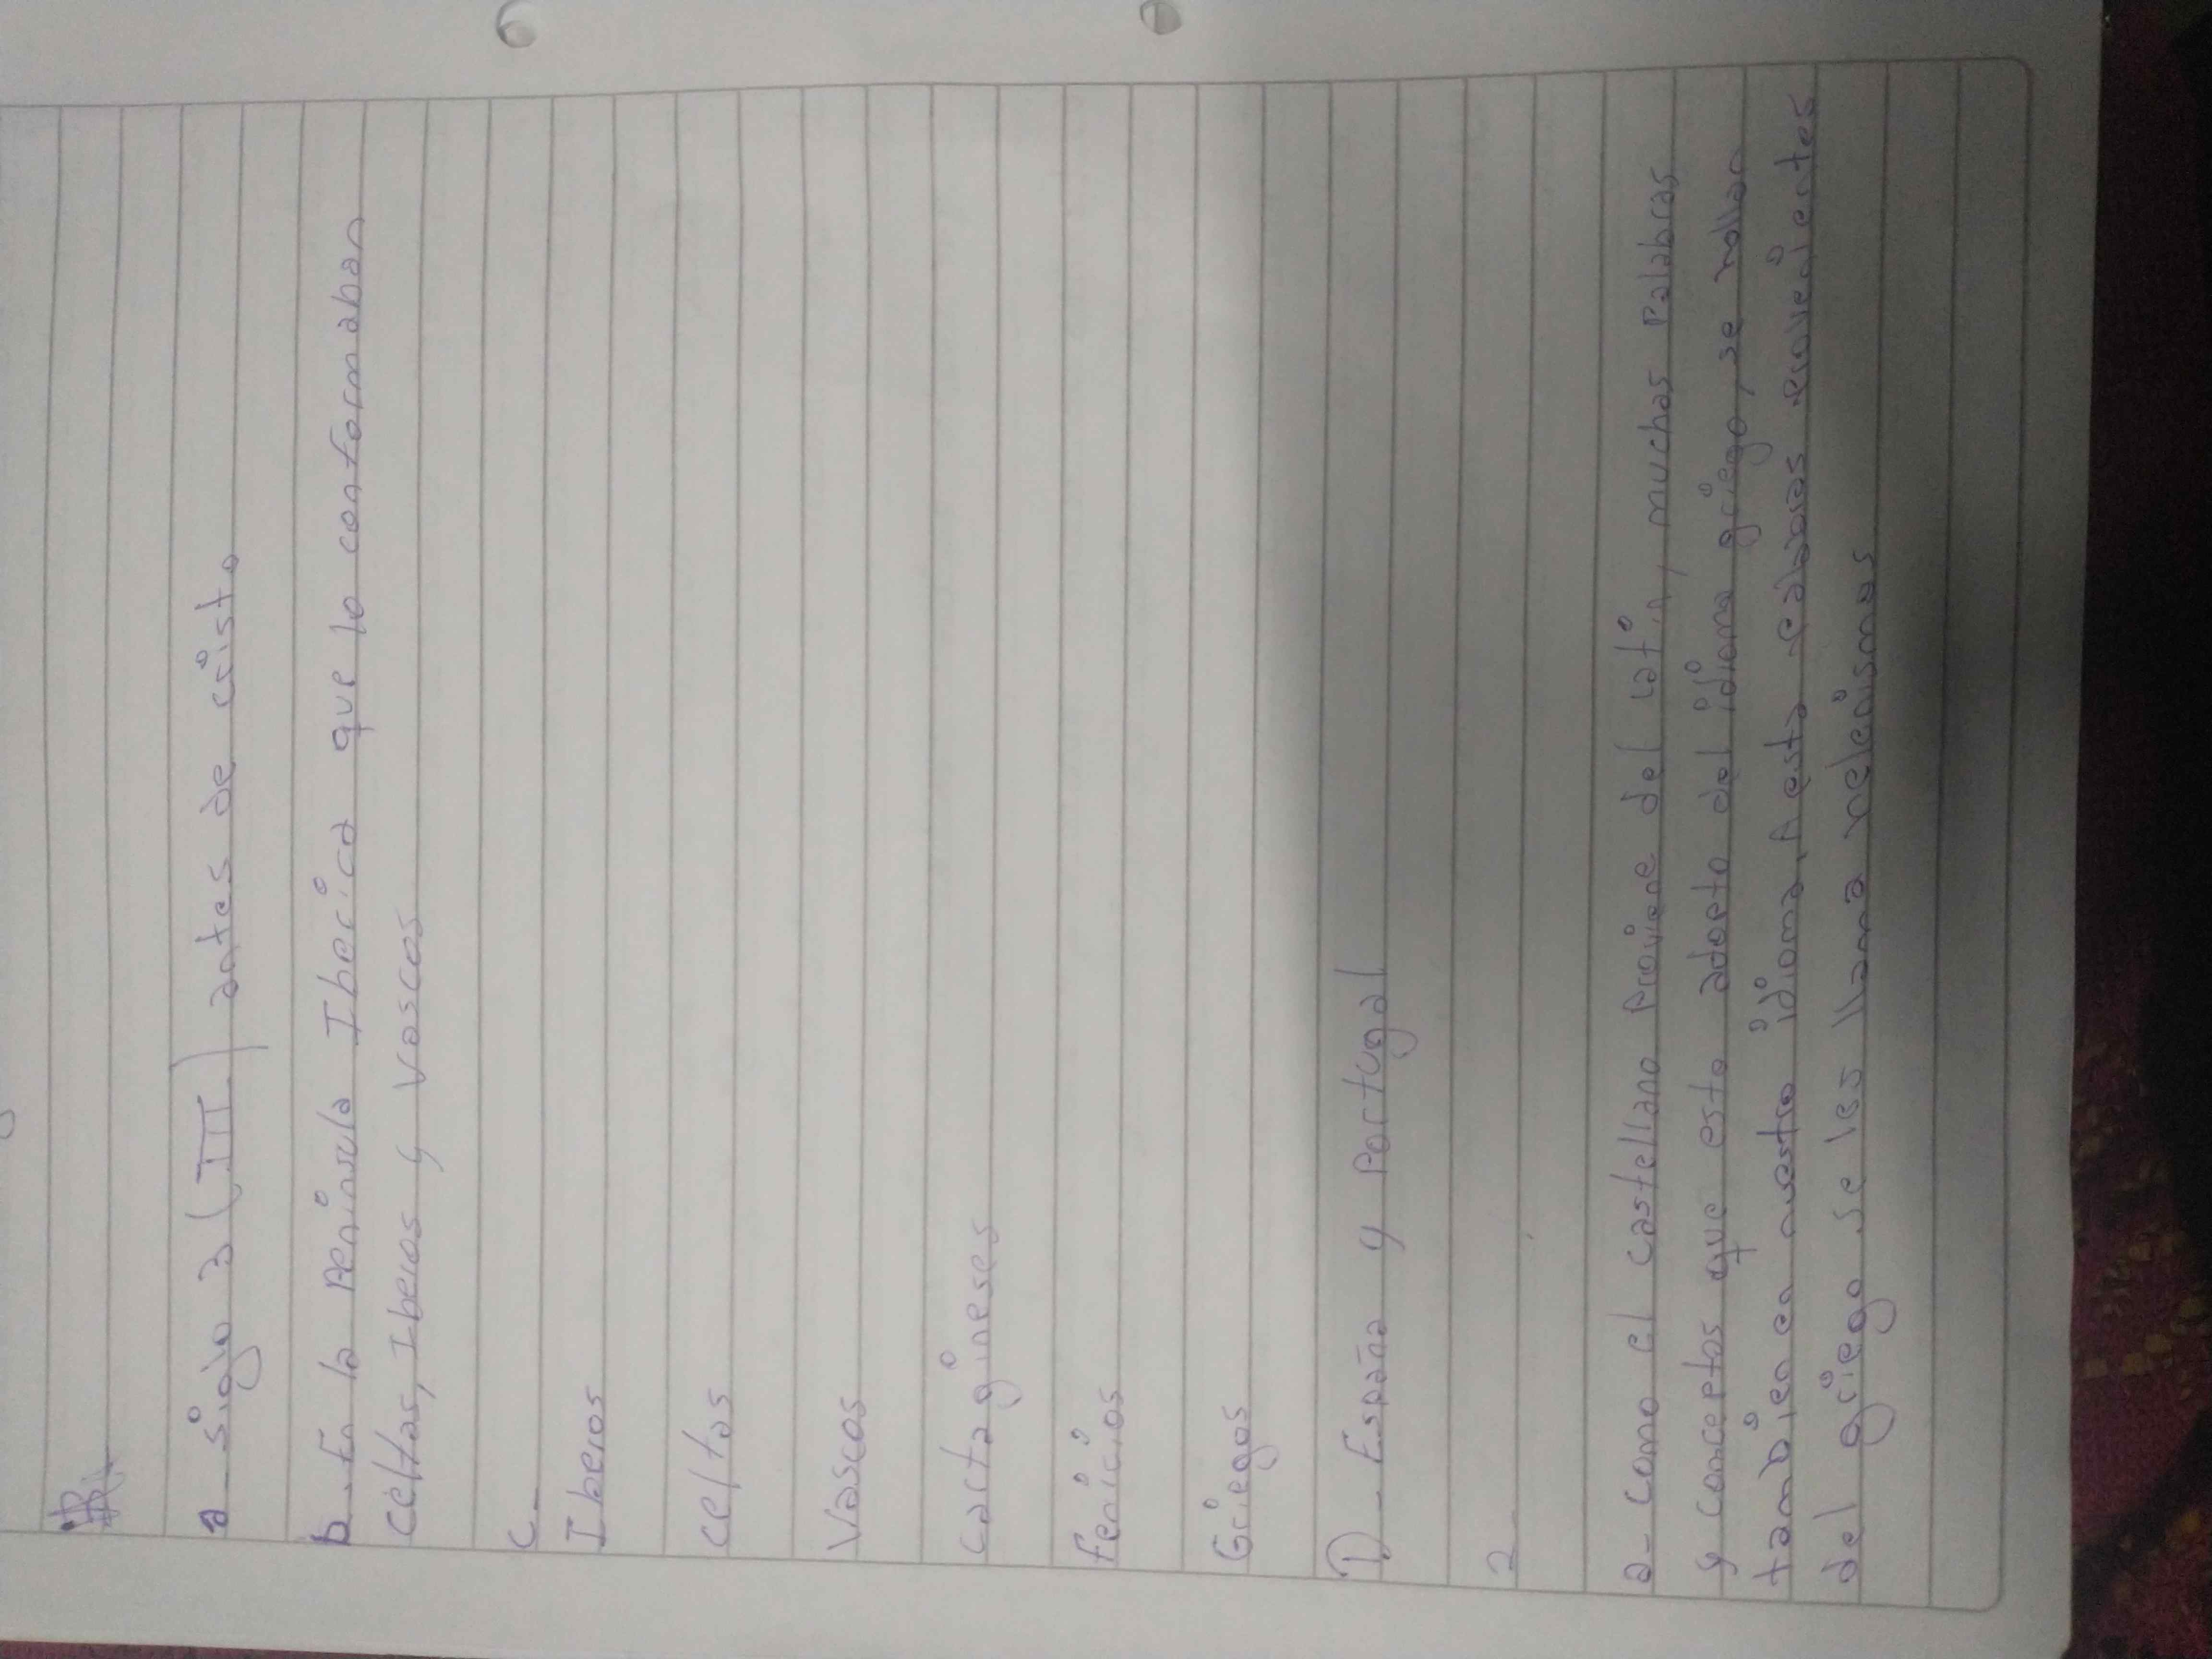 a - siglo 3 (III) antes de cristo
b - En la Peninsula Iberica que lo conformaban
celtas, Iberos y Vascos
C -
Iberos
celtas
Vascos
cartagineses
Fenicios
Griegos
D - España y Portugal
2
a - como el castellano Proviene del latin, muchas Palabras
y conceptos que esto adopto del idioma griego, se hallan
tambien en nuestro idioma. A esta palabras provenientes
del griego se les llama helenismos